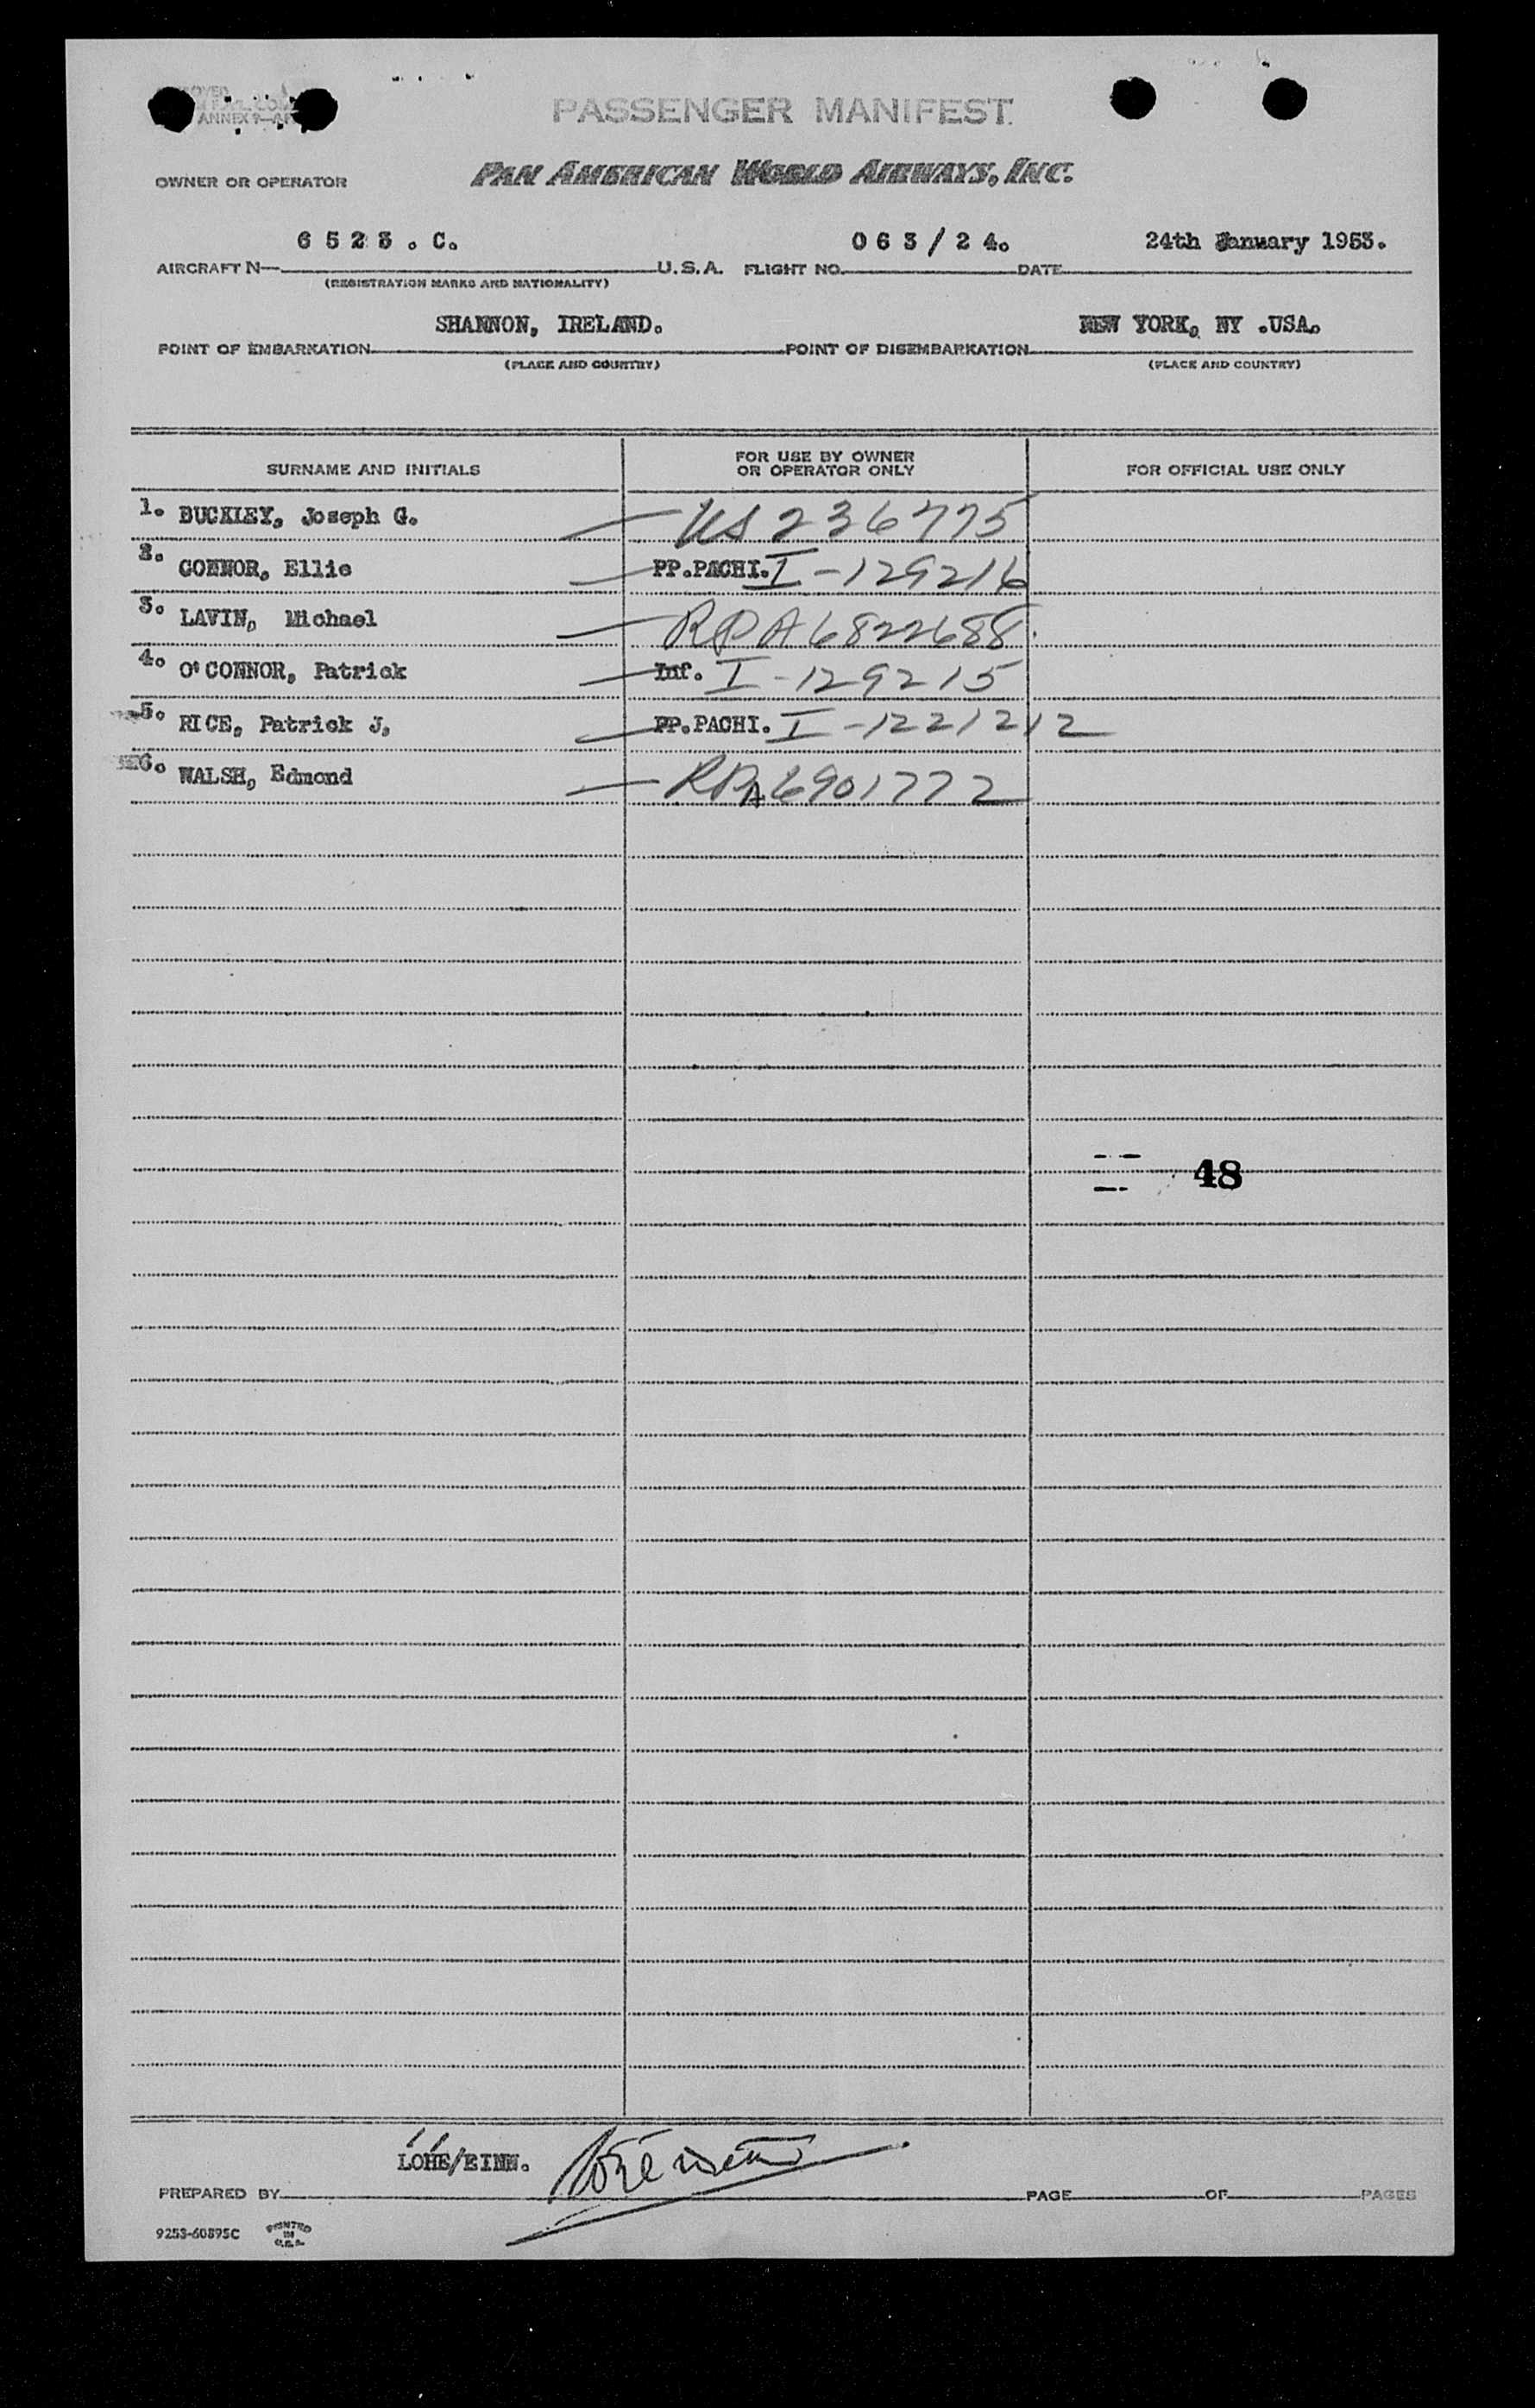 PASSENGER MANIFEST
ANNEX 9—
OWNER OR OPERATOR PAN AMERICAN WORLD AIRWAYS, INC.
6 5 2 3 . C. 0 6 3 / 2 4. 24th January 1953.
AIRCRAFT N— U.S.A. FLIGHT NO. DATE
(REGISTRATION MARKS AND NATIONALITY)
SHANNON, IRELAND. NEW YORK, NY .USA.
POINT OF EMBARKATION POINT OF DISEMBARKATION
(PLACE AND COUNTRY) (PLACE AND COUNTRY)
SURNAME AND INITIALS FOR USE BY OWNER OR OPERATOR ONLY FOR OFFICIAL USE ONLY
1. BUCKLEY, Joseph G. — US 236775
2. CONNOR, Ellie — PP.PACHI. I-129216
3. LAVIN, Michael — RPA6822688
4. O'CONNOR, Patrick — Inf. I-129215
5. RICE, Patrick J, — PP.PACHI. I-1221212
6. WALSH, Edmond — RPA6901772
48
LOHE/EINN.
PREPARED BY PAGE OF PAGES
9253-60895C PRINTED IN U.S.A.